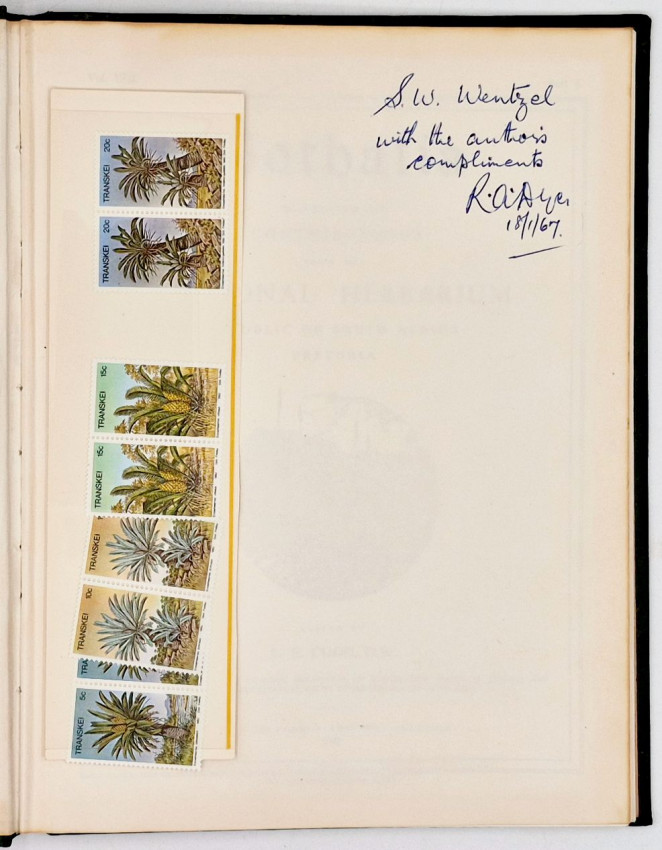 S. W. Wentzel
with the author's
compliments
R. A. Dyer
18/1/67.
TRANSKEI 20c
TRANSKEI 20c
TRANSKEI 15c
TRANSKEI 15c
TRANSKEI
TRANSKEI 10c
TRA
TRANSKEI 5c